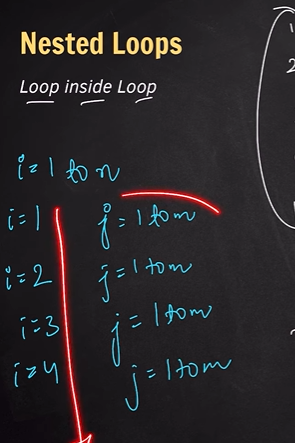 Nested Loops
Loop inside Loop
i=1 to n
i=1 j=1 to m
i=2 j=1 to m
i=3 j=1 to m
i=4 j=1 to m